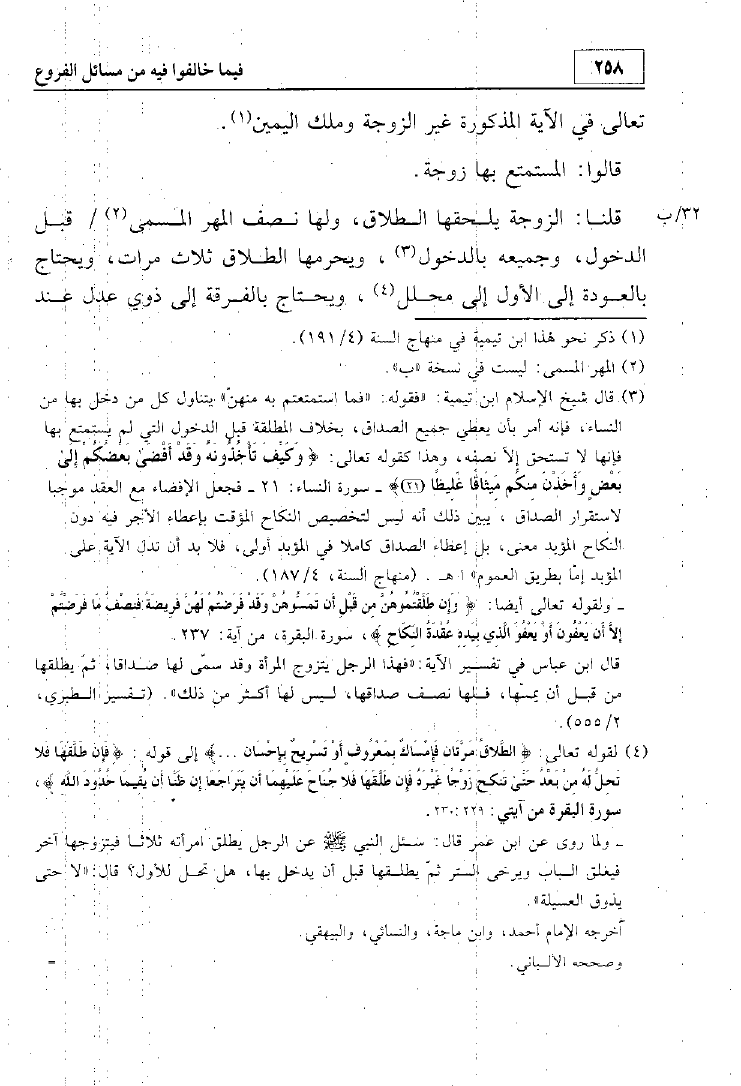 ٢٥٨ فيما خالفوا فيه من مسائل الفروع
تعالى في الآية المذكورة غير الزوجة وملك اليمين(١).
قالوا: المستمتع بها زوجة.
٣٢/ب قلنـا: الزوجة يلـحقها الـطلاق، ولها نـصف المهر المـسمى(٢) / قبـل
الدخول، وجميعه بالدخول(٣)، ويحرمها الطلاق ثلاث مرات، ويحتاج
بالعودة إلى الأول إلى محلل(٤)، ويحتاج بالفرقة إلى ذوي عدل عـند
(١) ذكر نحو هذا ابن تيمية في منهاج السنة (٤/ ١٩١).
(٢) المهر المسمى: ليست في نسخة «ب».
(٣) قال شيخ الإسلام ابن تيمية: «فقوله: «فما استمتعتم به منهنّ» يتناول كل من دخل بها من
النساء، فإنه أمر بأن يعطي جميع الصداق، بخلاف المطلقة قبل الدخول التي لم يستمتع بها
فإنها لا تستحق إلاّ نصفه، وهذا كقوله تعالى: ﴿ وَكَيْفَ تَأْخُذُونَهُ وَقَدْ أَفْضَىٰ بَعْضُكُمْ إِلَىٰ
بَعْضٍ وَأَخَذْنَ مِنكُم مِّيثَاقًا غَلِيظًا (٢١)﴾ ـ سورة النساء: ٢١ ـ فجعل الإفضاء مع العقد موجبا
لاستقرار الصداق ، يبين ذلك أنه ليس لتخصيص النكاح المؤقت بإعطاء الأجر فيه دون
النكاح المؤبد معنى، بل إعطاء الصداق كاملا في المؤبد أولى، فلا بد أن تدل الآية على
المؤبد إمّا بطريق العموم» ا هـ . (منهاج السنة، ٤/ ١٨٧).
ـ ولقوله تعالى أيضا: ﴿ وَإِن طَلَّقْتُمُوهُنَّ مِن قَبْلِ أَن تَمَسُّوهُنَّ وَقَدْ فَرَضْتُمْ لَهُنَّ فَرِيضَةً فَنِصْفُ مَا فَرَضْتُمْ
إِلاَّ أَن يَعْفُونَ أَوْ يَعْفُوَ الَّذِي بِيَدِهِ عُقْدَةُ النِّكَاحِ ﴾، سورة البقرة، من آية: ٢٣٧.
قال ابن عباس في تفسير الآية: «فهذا الرجل يتزوج المرأة وقد سمّى لها صداقا، ثمّ يطلقها
من قبل أن يمسّها، فـلها نصف صداقها، ليـس لها أكـثر من ذلك». (تـفسير الـطبري،
٢/ ٥٥٥).
(٤) لقوله تعالى: ﴿ الطَّلاقُ مَرَّتَانِ فَإِمْسَاكٌ بِمَعْرُوفٍ أَوْ تَسْرِيحٌ بِإِحْسَانٍ ...﴾ إلى قوله : ﴿ فَإِن طَلَّقَهَا فَلا
تَحِلُّ لَهُ مِنْ بَعْدُ حَتَّىٰ تَنكِحَ زَوْجًا غَيْرَهُ فَإِن طَلَّقَهَا فَلا جُنَاحَ عَلَيْهِمَا أَن يَتَرَاجَعَا إِن ظَنَّا أَن يُقِيمَا حُدُودَ اللَّهِ ﴾،
سورة البقرة من آيتي: ٢٢٩: ٢٣٠.
ـ ولما روى عن ابن عمر قال: سـئل النبي ﷺ عن الرجل يطلق امرأته ثلاثـا فيتزوجها آخر
فيغلق الـباب ويرخى الستر ثمّ يطلقـها قبل أن يدخل بها، هل تحـل للأول؟ قال: «لا حتى
يذوق العسيلة».
أخرجه الإمام أحمد، وابن ماجة، والنسائي، والبيهقي.
وصححه الألـباني. =